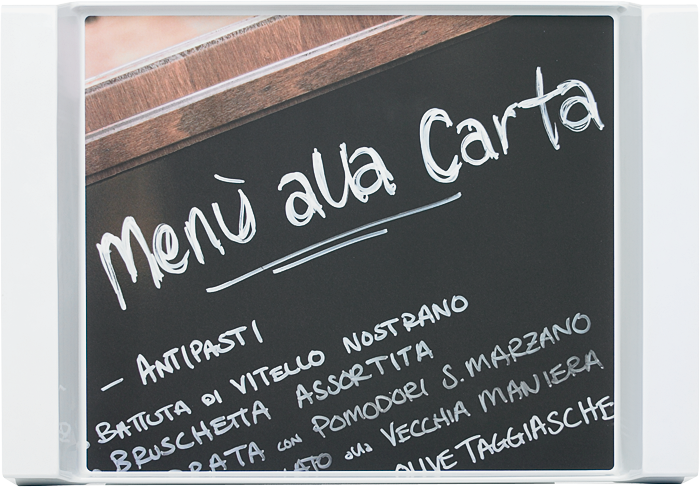 Menù alla Carta
- ANTIPASTI
BATTUTA DI VITELLO NOSTRANO
BRUSCHETTA ASSORTITA
CON POMODORI S. MARZANO
alla VECCHIA MANIERA
OLIVE TAGGIASCHE